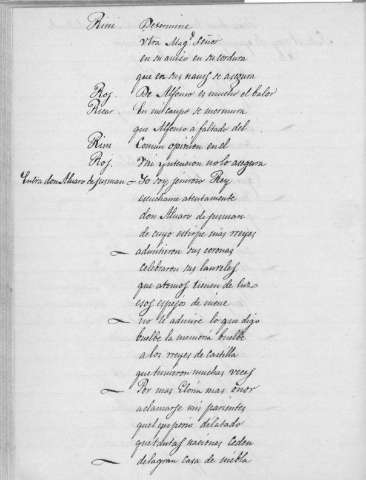 Rini Determine
Vtra Magd Señor
en su auiso en su cordura
que en sus naues se asegura
Roj. De Alfonso es mucho el balor
Ricar En mi campo se mormura
que Alfonso a faltado del
Rini Comun opinion en el
Roj. Mi yntencion no lo asegura
Entra don Aluaro de Jusman – Yo soy señor Rey
escuchame atentamente
don Aluaro de Jusman
de cuyo estirpe mas rreyes
admitieron sus coronas
celebraron sus laureles
que atomos tienen de luz
esos espejos de nieue
no te admire lo que digo
buelbe la memoria buelbe
a los rreyes de Castilla
que tuuieron muchas veces
Por mas Gloria mas onor
aclamarse mis parientes
que del
que tantas naciones Ceden
de la gran casa de niebla